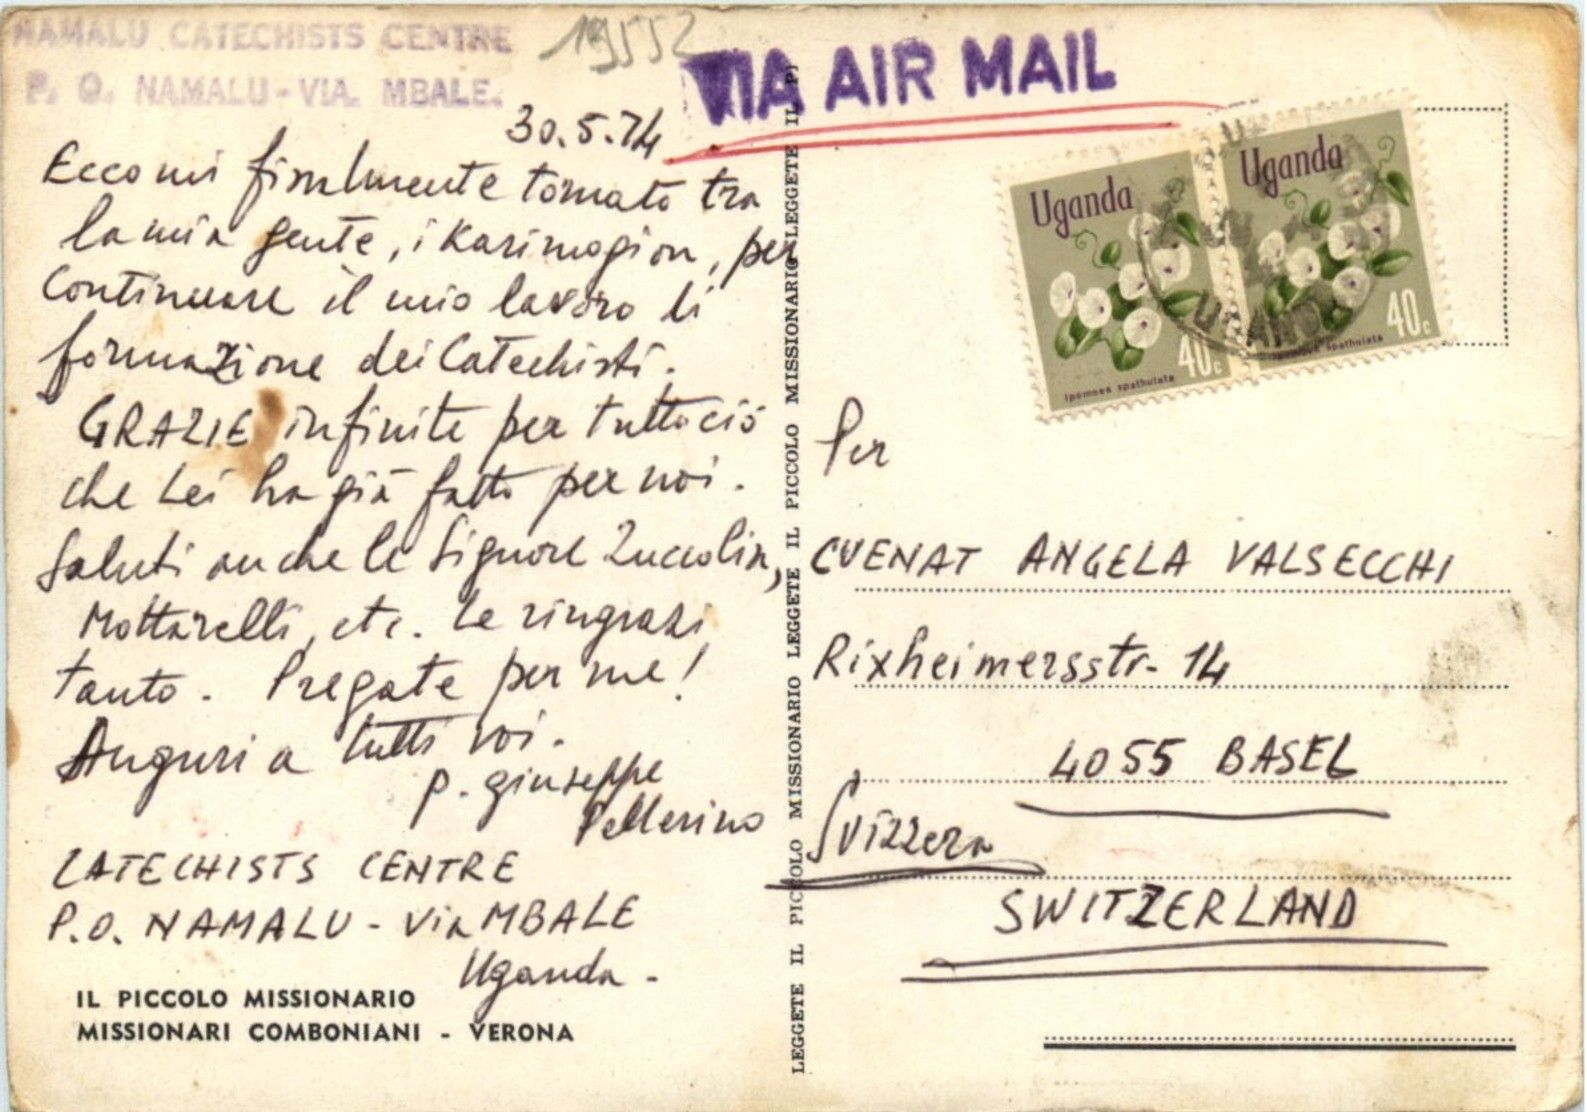 NAMALU CATECHISTS CENTRE
P. O. NAMALU - VIA. MBALE.
19552
VIA AIR MAIL
30.5.74
Eccomi finalmente tornato tra
la mia gente, i Karimogion, per
continuare il mio lavoro di
formazione dei Catechisti.
GRAZIE infinite per tutto ciò
che Lei ha già fatto per noi.
Saluti anche le Signore Zuccolin,
Mottarelli, etc. Le ringrazi
tanto. Pregate per me!
Auguri a tutti voi.
p. Giuseppe
Pellerino
CATECHISTS CENTRE
P.O. NAMALU - Via MBALE
Uganda -
IL PICCOLO MISSIONARIO
MISSIONARI COMBONIANI - VERONA
LEGGETE IL PICCOLO MISSIONARIO LEGGETE IL PICCOLO MISSIONARIO LEGGETE IL P)
Uganda
40c
Ipomoea spathulata
Uganda
40c
Ipomoea spathulata
Per
CUENAT ANGELA VALSECCHI
Rixheimersstr. 14
4055 BASEL
Svizzera
SWITZERLAND